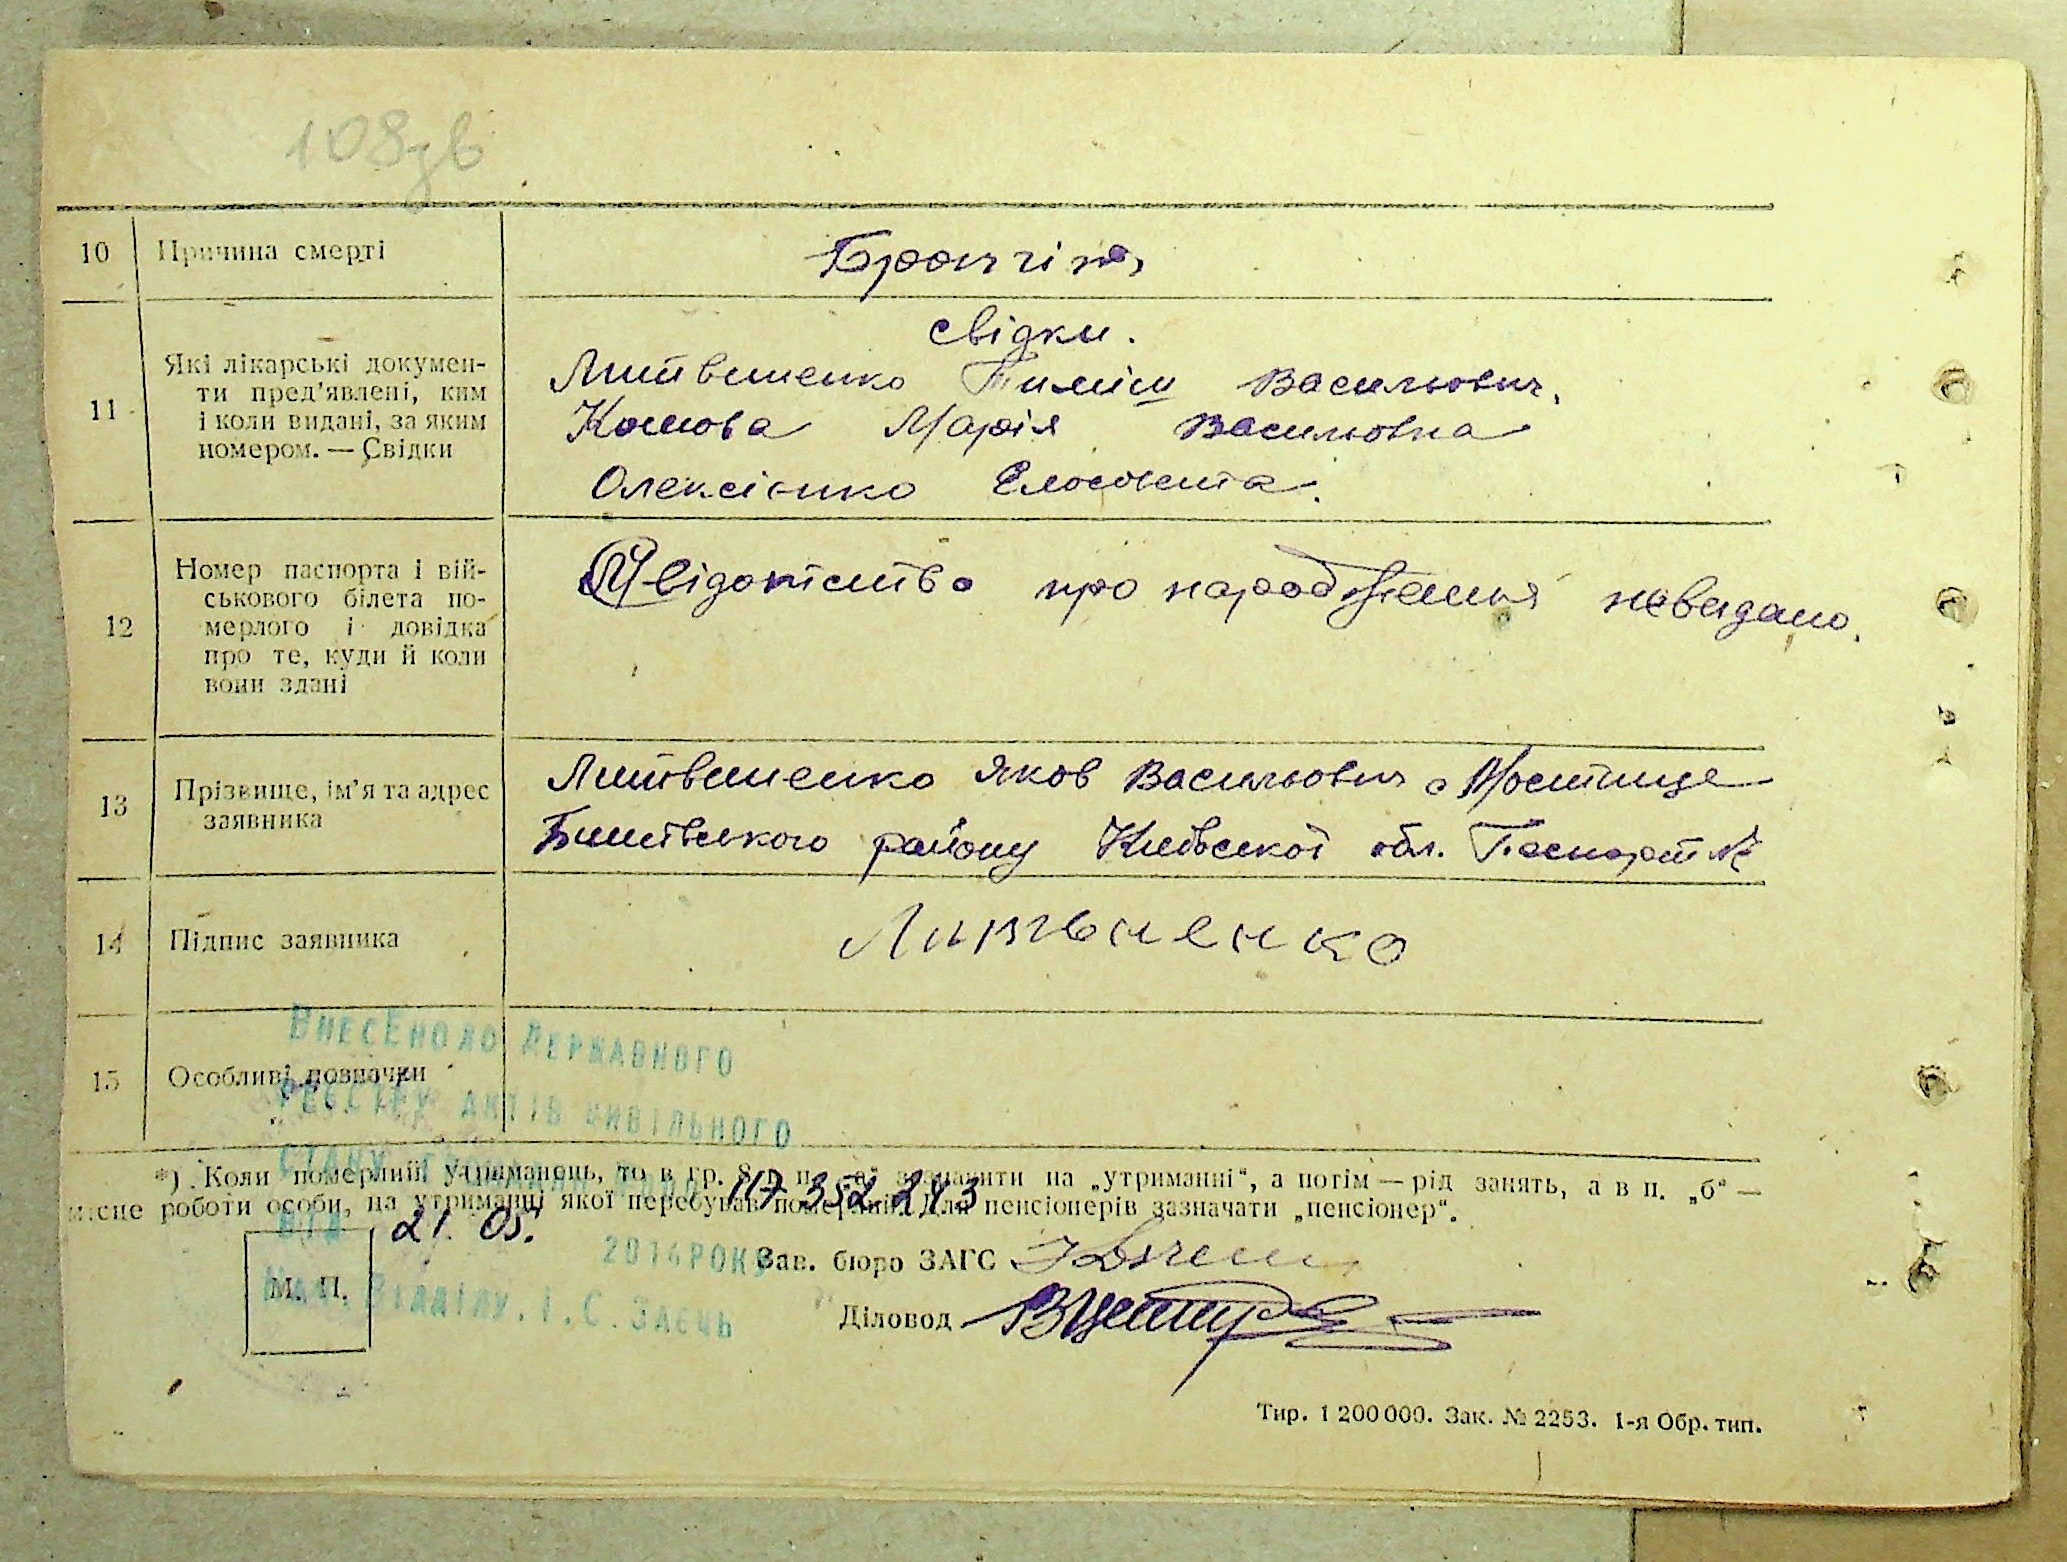 108зв
10 Причина смерті Бронхіт,
свідки.
11 Які лікарські докумен-
ти пред'явлені, ким
і коли видані, за яким
номером. — Свідки
Литвиненко Тиміш Васильович,
Марія Василювна
Олексієнко
12 Номер паспорта і вій-
ськового білета по-
мерлого і довідка
про те, куди й коли
вони здані
Свідоцтво про народження невидано.
13 Прізвище, ім'я та адрес
заявника
Литвиненко Яков Васильович с Мостище
Бишівського району Київської обл. Паспорт №
14 Підпис заявника Литвененко
15 Особливі позначки
ВНЕСЕНО ДО ДЕРЖАВНОГО
РЕЄСТРУ АКТІВ ЦИВІЛЬНОГО
СТАНУ
117352243
*) Коли померлий утриманець, то в гр. 8 в п. „а“ зазначити на „утриманні“, а потім — рід занять, а в п. „б“ —
місце роботи особи, на утриманні якої перебував померлий. Для пенсіонерів зазначати „пенсіонер“.
ВІД 21. 05. 2014 РОКУ
НАЧ. ВІДДІЛУ. І. С. ЗАЄЦЬ
М. П.
Зав. бюро ЗАГС
Діловод
Тир. 1 200 000. Зак. № 2253. 1-я Обр. тип.